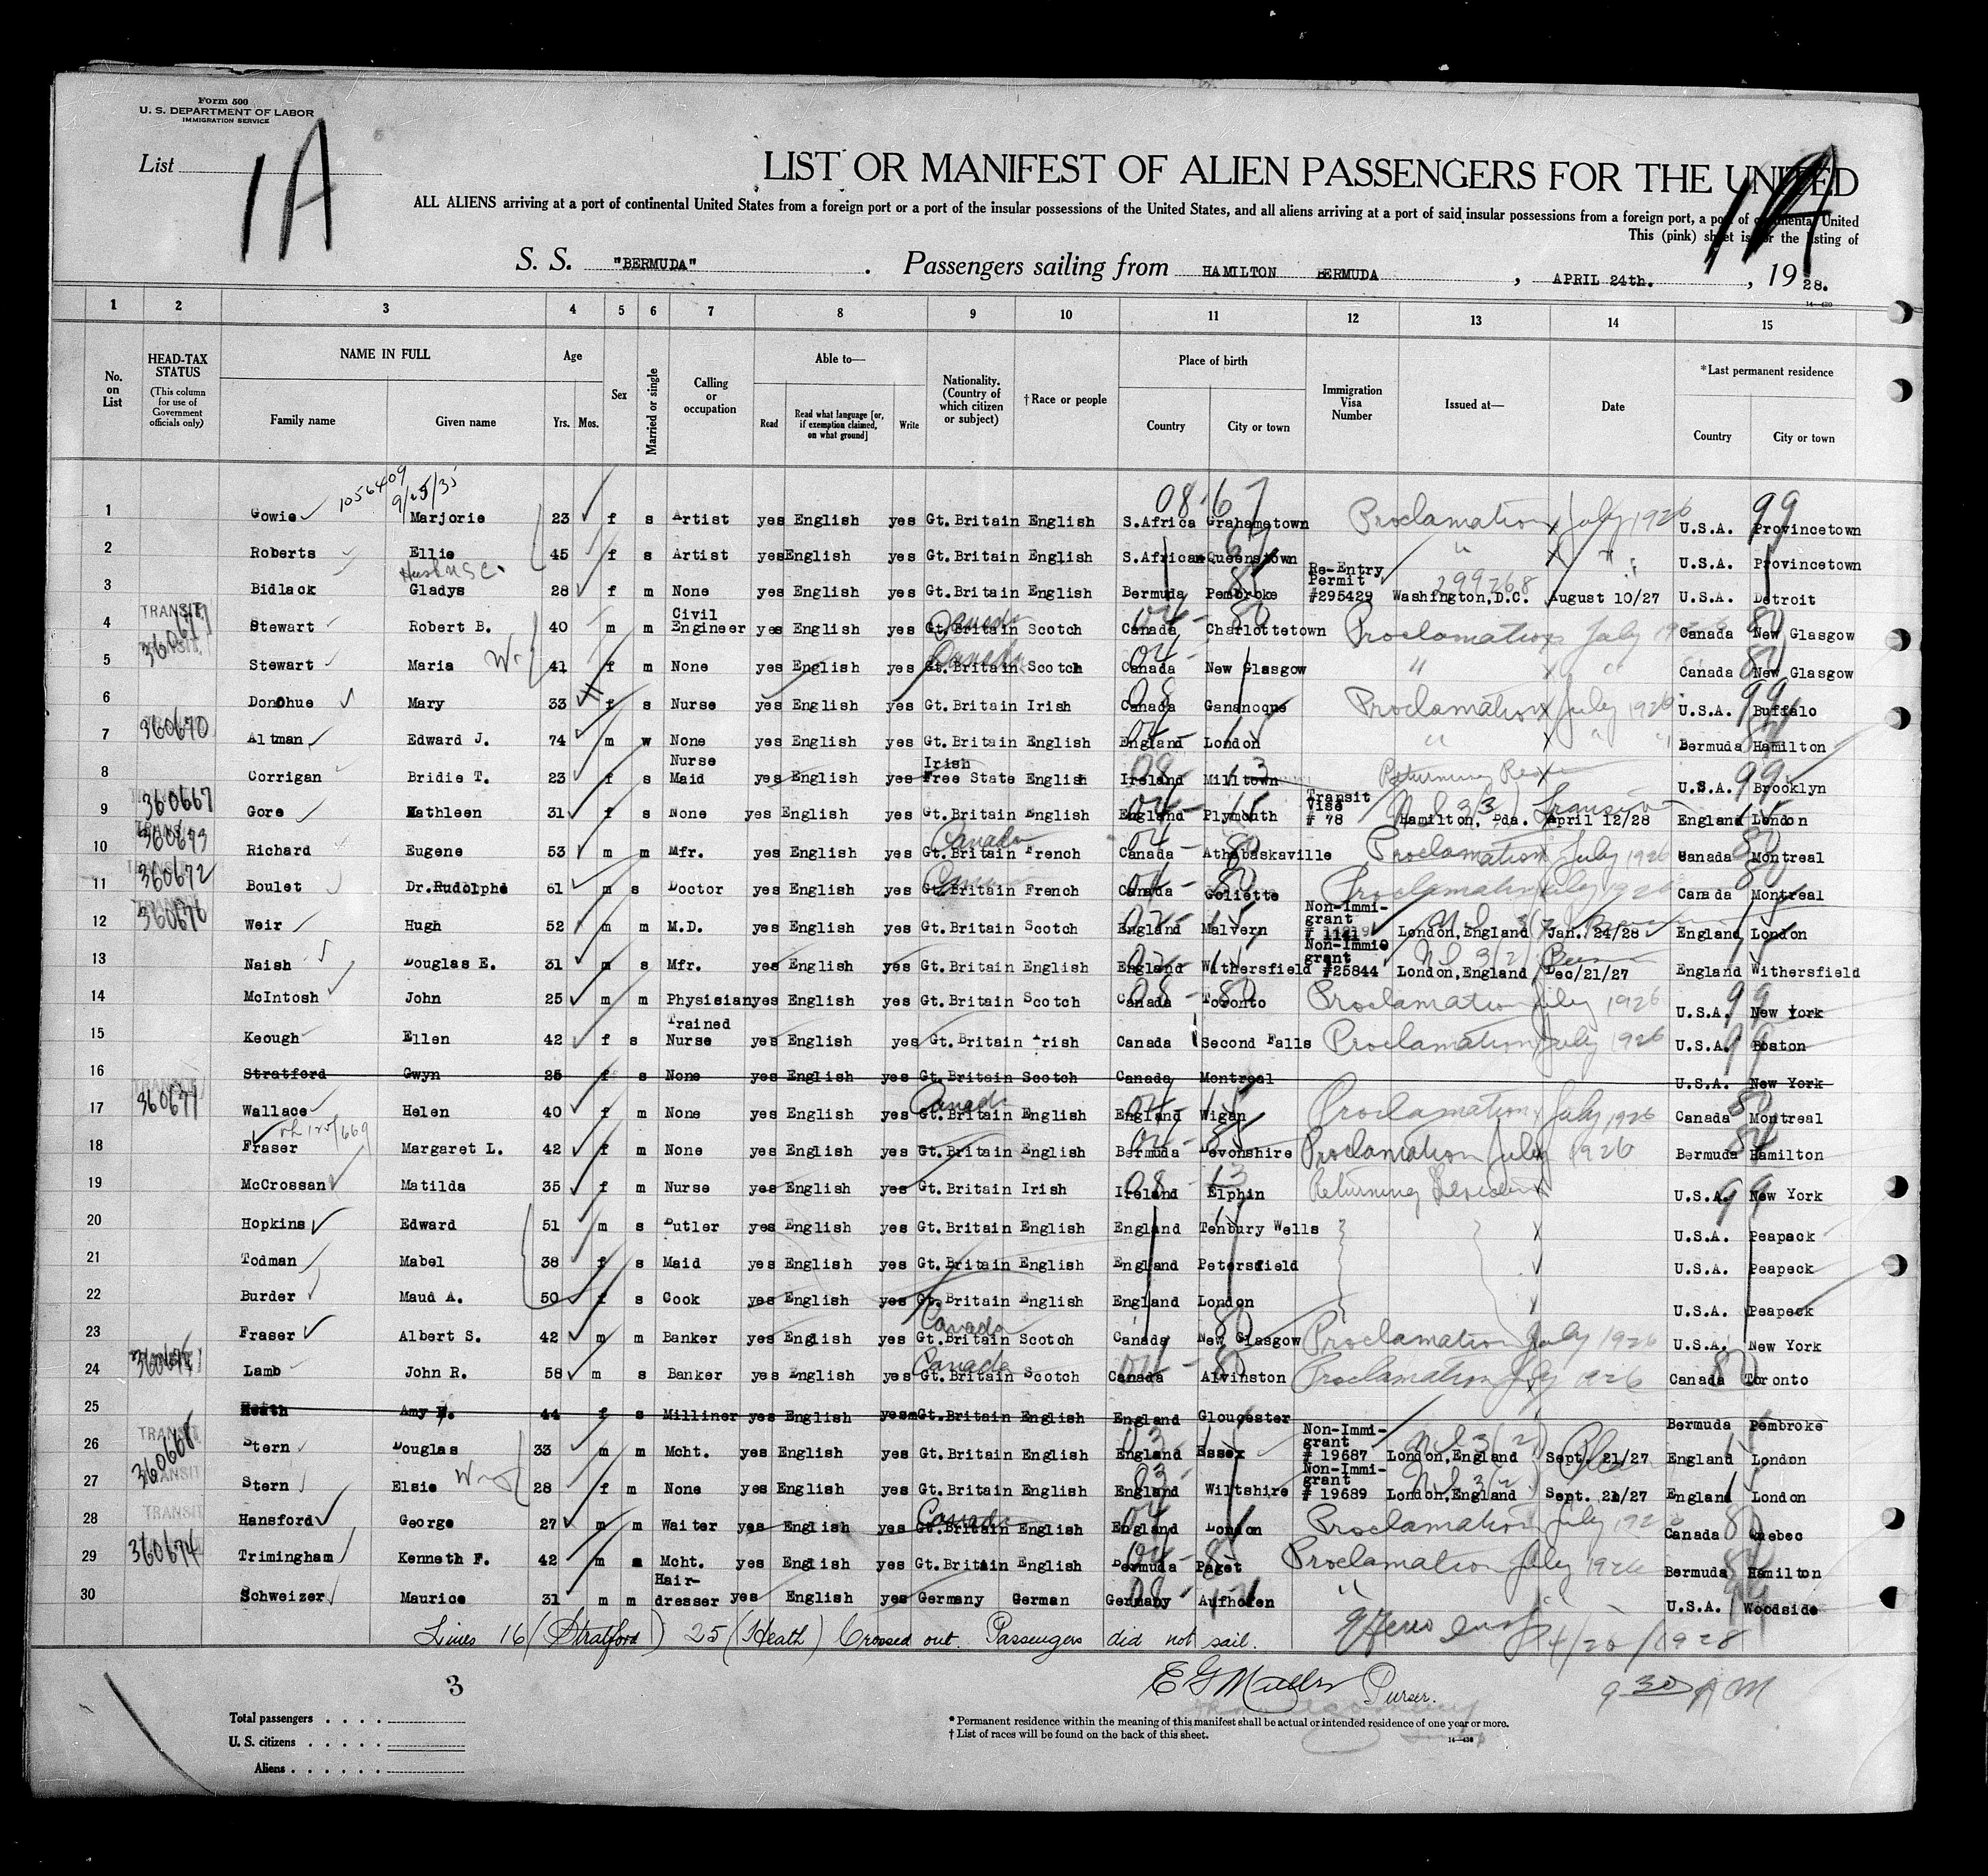 Form 500
U. S. DEPARTMENT OF LABOR
IMMIGRATION SERVICE
List 1A
1A
LIST OR MANIFEST OF ALIEN PASSENGERS FOR THE UNITED
ALL ALIENS arriving at a port of continental United States from a foreign port or a port of the insular possessions of the United States, and all aliens arriving at a port of said insular possessions from a foreign port, a port of continental United
This (pink) sheet is for the listing of
S. S. "BERMUDA" . Passengers sailing from HAMILTON BERMUDA , APRIL 24th. , 1928.
14-430
1 2 3 4 5 6 7 8 9 10 11 12 13 14 15
No. on List
HEAD-TAX STATUS
(This column for use of Government officials only)
NAME IN FULL
Family name Given name
Age
Yrs. Mos.
Sex
Married or single
Calling or occupation
Able to—
Read Read what language [or, if exemption claimed, on what ground] Write
Nationality. (Country of which citizen or subject)
† Race or people
Place of birth
Country City or town
Immigration Visa Number
Issued at—
Date
* Last permanent residence
Country City or town
1056409 9/25/35 08-67
1 Gowie Marjorie 23 f s Artist yes English yes Gt.Britain English S.Africa Grahamstown Proclamation July 1926 U.S.A. 99 Provincetown
2 Roberts Ellie 45 f s Artist yes English yes Gt.Britain English S.African Queenstown " " " U.S.A. Provincetown
3 Bidlack Gladys 28 f m None yes English yes Gt.Britain English Bermuda Pembroke Re-Entry Permit #295429 299268 Washington,D.C. August 10/27 U.S.A. Detroit
4 TRANSIT Stewart Robert B. 40 m m Civil Engineer yes English yes Gt.Britain Canada Scotch Canada Charlottetown Proclamation July 1926 Canada New Glasgow
5 Stewart Maria 41 f m None yes English yes Gt.Britain Canada Scotch Canada New Glasgow " " Canada New Glasgow
6 Donohue Mary 33 f s Nurse yes English yes Gt.Britain Irish Canada Gananoque Proclamation July 1926 U.S.A. 99 Buffalo
7 360670 Altman Edward J. 74 m w None yes English yes Gt.Britain English England London " " " Bermuda Hamilton
8 Corrigan Bridie T. 23 f s Nurse Maid yes English yes Irish Free State English Ireland Milltown Returning Res U.S.A. 99 Brooklyn
9 360667 Gore Kathleen 31 f s None yes English yes Gt.Britain English England Plymouth Transit Vise # 78 Hamilton, Bda. April 12/28 England London
10 360673 Richard Eugene 53 m m Mfr. yes English yes Gt.Britain Canada French Canada Athabaskaville Proclamation July 1926 Canada Montreal
11 360672 Boulet Dr.Rudolphe 61 m s Doctor yes English yes Gt.Britain French Canada Goliette Proclamation July 1926 Canada Montreal
12 360676 Weir Hugh 52 m m M.D. yes English yes Gt.Britain Scotch England Malvern Non-Immigrant # 1141 London,England Jan. 24/28 England London
13 Naish Douglas E. 31 m s Mfr. yes English yes Gt.Britain English England Withersfield Non-Immigrant #25844 London,England Dec/21/27 England Withersfield
14 McIntosh John 25 m m Physician yes English yes Gt.Britain Scotch Canada Toronto Proclamation July 1926 U.S.A. 99 New York
15 Keough Ellen 42 f s Trained Nurse yes English yes Gt.Britain Irish Canada Second Falls Proclamation July 1926 U.S.A. 99 Boston
16 Stratford Gwyn 25 f s None yes English yes Gt.Britain Scotch Canada Montreal U.S.A. New York
17 360671 Wallace Helen 40 f m None yes English yes Gt.Britain Canada English England Wigan Proclamation July 1926 Canada Montreal
18 Fraser Margaret L. 42 f m None yes English yes Gt.Britain English Bermuda Devonshire Proclamation July 1926 Bermuda Hamilton
19 McCrossan Matilda 35 f m Nurse yes English yes Gt.Britain Irish Ireland Elphin Returning Resident U.S.A. 99 New York
20 Hopkins Edward 51 m s Butler yes English yes Gt.Britain English England Tenbury Wells U.S.A. Peapack
21 Todman Mabel 38 f s Maid yes English yes Gt.Britain English England Petersfield U.S.A. Peapeck
22 Burder Maud A. 50 f s Cook yes English yes Gt.Britain English England London U.S.A. Peapeck
23 Fraser Albert S. 42 m m Banker yes English yes Gt.Britain Canada Scotch Canada New Glasgow Proclamation July 1926 U.S.A. New York
24 Lamb John R. 58 m s Banker yes English yes Gt.Britain Canada Scotch Canada Alvinston Proclamation July 1926 Canada Toronto
25 Heath Amy 44 f s Milliner yes English yes Gt.Britain English England Gloucester Bermuda Pembroke
26 TRANSIT 360668 Stern Douglas 33 m m Mcht. yes English yes Gt.Britain English England Essex Non-Immigrant # 19687 London,England Sept. 21/27 England London
27 TRANSIT Stern Elsie 28 f m None yes English yes Gt.Britain English England Wiltshire Non-Immigrant # 19689 London,England Sept. 21/27 England London
28 TRANSIT Hansford George 27 m m Waiter yes English yes Gt.Britain Canada English England London Proclamation July 1926 Canada Quebec
29 360674 Trimingham Kenneth F. 42 m Mcht. yes English yes Gt.Britain English Bermuda Paget Proclamation July 1926 Bermuda Hamilton
30 Schweizer Maurice 31 m m Hair-dresser yes English yes Germany German Germany Aufhofen " U.S.A. Woodside
Lines 16 (Stratford) 25 (Heath) Crossed out. Passengers did not sail. 4/26/1928
Purser. 9 30 AM
3
Total passengers
U. S. citizens
Aliens
* Permanent residence within the meaning of this manifest shall be actual or intended residence of one year or more.
† List of races will be found on the back of this sheet.
14-430